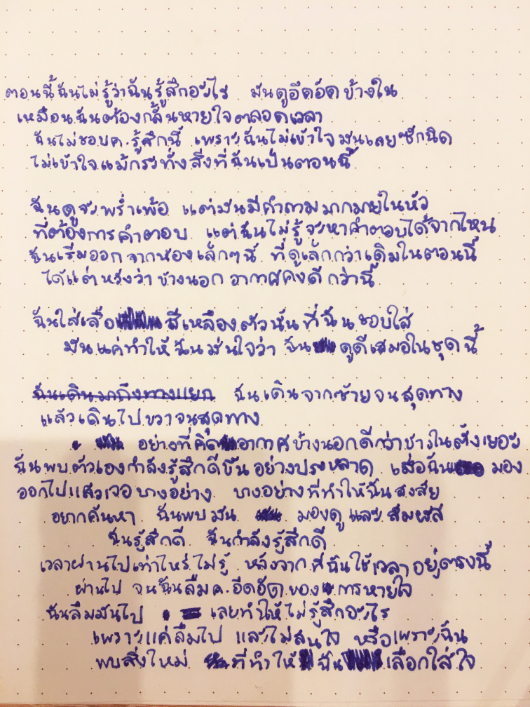 ตอนนี้ฉันไม่รู้ว่าฉันรู้สึกอะไร มันดูอึดอัดข้างใน
เหมือนฉันต้องกลั้นหายใจตลอดเวลา
ฉันไม่ชอบค.รู้สึกนี้ เพราะฉันไม่เข้าใจมันเลยซักนิด
ไม่เข้าใจแม้กระทั่งสิ่งที่ฉันเป็นตอนนี้
ฉันดูจะพร่ำเพ้อ แต่มันมีคำถามมากมายในหัว
ที่ต้องการคำตอบ แต่ฉันไม่รู้จะหาคำตอบได้จากไหน
ฉันเริ่มออกจากห้องเล็กๆนี้ ที่ดูเล็กกว่าเดิมในตอนนี้
ได้แต่หวังว่าข้างนอกอากาศคงดีกว่านี้
ฉันใส่เสื้อ สีเหลืองตัวนั้นที่ฉันชอบใส่
มันแค่ทำให้ฉันมั่นใจว่า ฉัน ดูดีเสมอในชุดนี้
ฉันเดินมาถึงทางแยก ฉันเดินจากซ้ายจนสุดทาง
แล้วเดินไปขวาจนสุดทาง
อย่างที่คิด อากาศข้างนอกดีกว่าข้างในตั้งเยอะ
ฉันพบตัวเองกำลังรู้สึกดีขึ้นอย่างประหลาด เมื่อฉัน มอง
ออกไปแล้วเจอบางอย่าง บางอย่างที่ทำให้ฉันสงสัย
อยากค้นหา ฉันพบมัน มองดู และสัมผัส
ฉันรู้สึกดี ฉันกำลังรู้สึกดี
เวลาผ่านไปเท่าไหร่ไม่รู้ หลังจากที่ฉันใช้เวลาอยู่ตรงนี้
ผ่านไป จนฉันลืมค.อึดอัดของ การหายใจ
ฉันลืมมันไป เลยทำให้ไม่รู้สึกอะไร
เพราะแค่ลืมไป และไม่สนใจ หรือเพราะฉัน
พบสิ่งใหม่ ที่ทำให้ ฉัน เลือกใส่ใจ